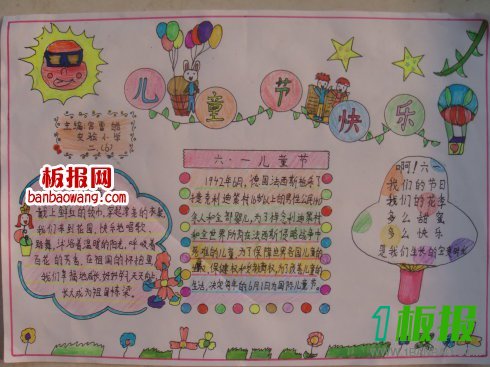 儿童节快乐
主编:
实验小学
二.(6)
板报网
banbaowang.com
六·一儿童节
1942年6月,德国法西斯枪杀了
捷克利迪策村16岁以上的男性公民140
余人和全部婴儿,为了悼念利迪策村
和全世界所有在法西斯侵略战争中
死难的儿童,为了保障世界各国儿童的
生存、保健权和受教育权,为了改善儿童的
生活,决定每年的6月1日为国际儿童节。
戴上鲜红的领巾,穿起漂亮的衣裳
我们来到花园,快乐地唱歌、
跳舞,沐浴着温暖的阳光,呼吸着
百花的芳香,在祖国的怀抱里
我们幸福地成长,好好学习,天天向上
长大成为祖国栋梁。
啊!六一
我们的节日
我们的花季
多么甜蜜
多么快乐
是我们生长的
1板报